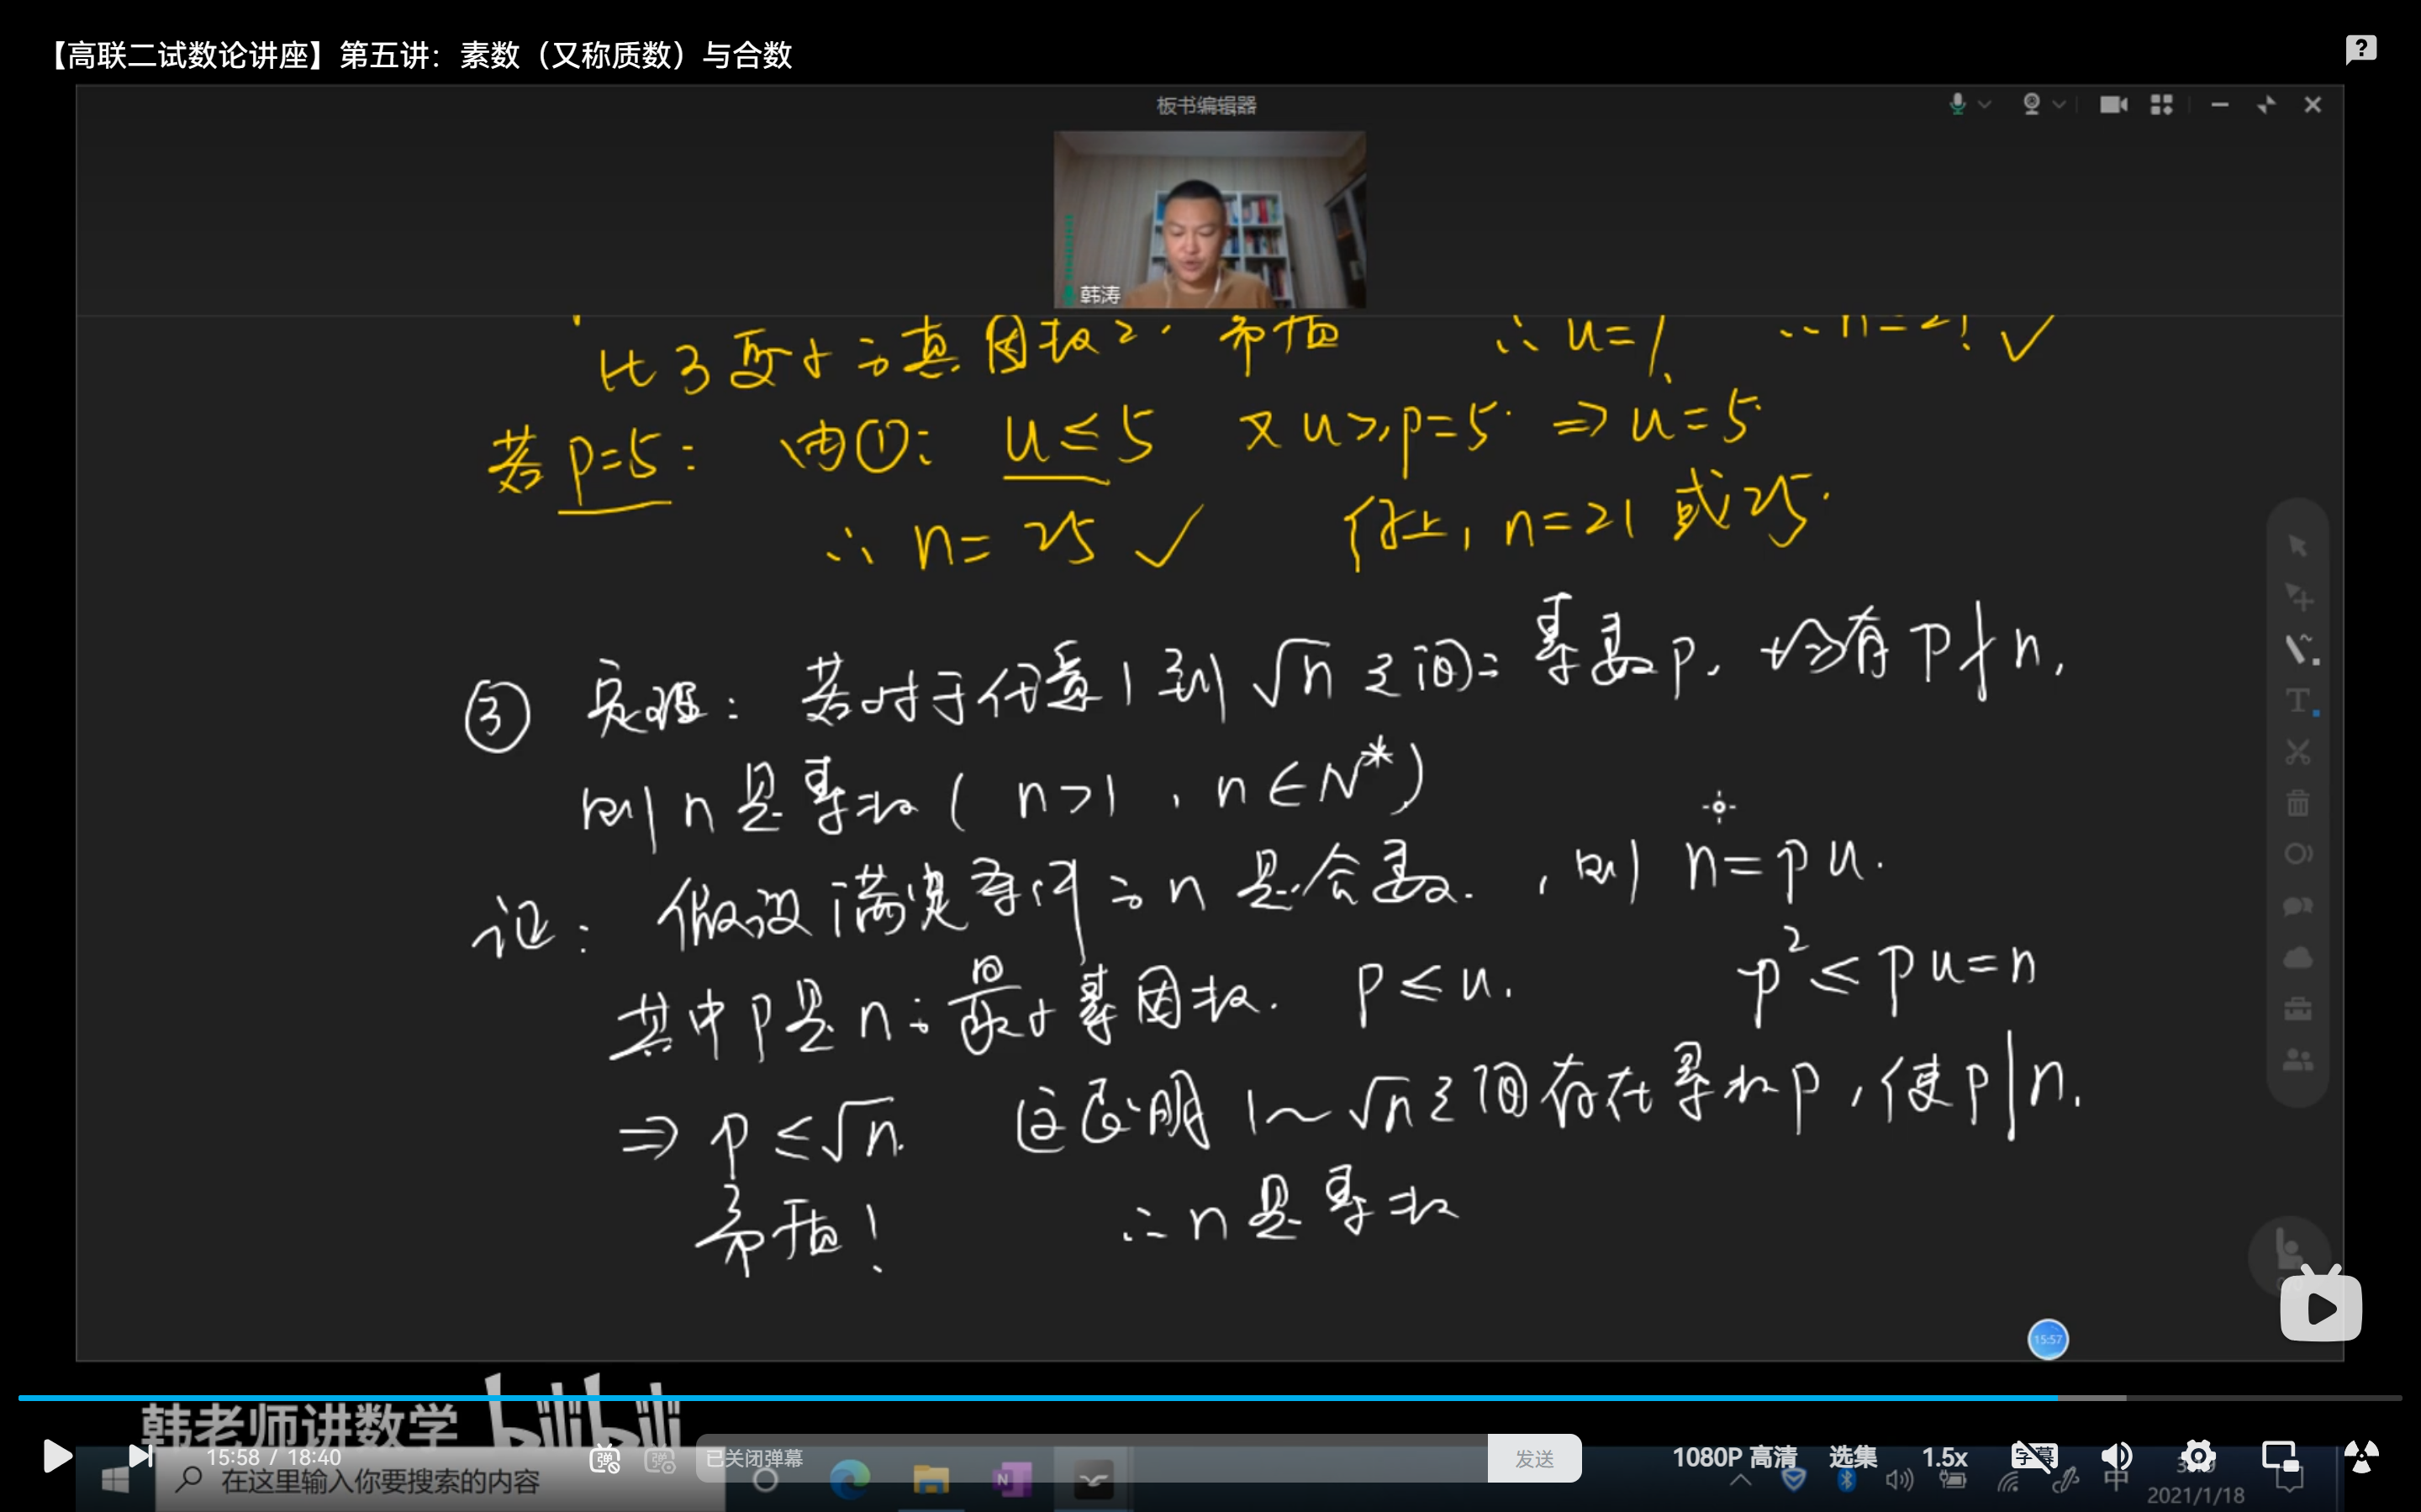 【高联二试数论讲座】第五讲：素数（又称质数）与合数
板书编辑器
韩涛
比3更小的真因数2. 矛盾 ∴ u=1 ∴ n=21 ✓
若 p=5: 由①: u≤5 又 u≥p=5 ⇒ u=5
∴ n=25 ✓ 综上, n=21 或 25.
③ 定理: 若对于任意1到√n之间的素数p, 均有 p∤n,
则 n 是素数 ( n>1, n∈N* )
证: 假设满足条件的 n 是合数. , 则 n=pu.
其中p是n的最小素因数. p≤u. p²≤pu=n
⇒ p≤√n. 这说明 1~√n之间存在素数p, 使p|n.
矛盾! ∴n是素数
15:57
韩老师讲数学 bilibili
15:58 / 18:40
已关闭弹幕
发送
1080P 高清 选集 1.5x 字幕
在这里输入你要搜索的内容
中
2021/1/18